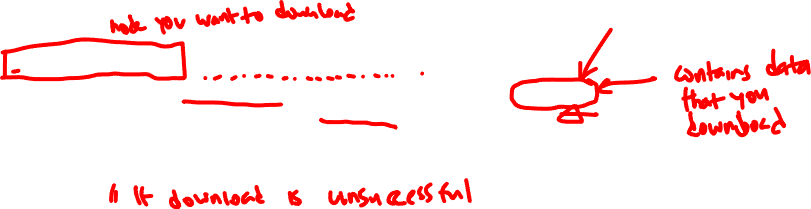 node you want to download
contains data
that you
download
" It download is unsuccessful